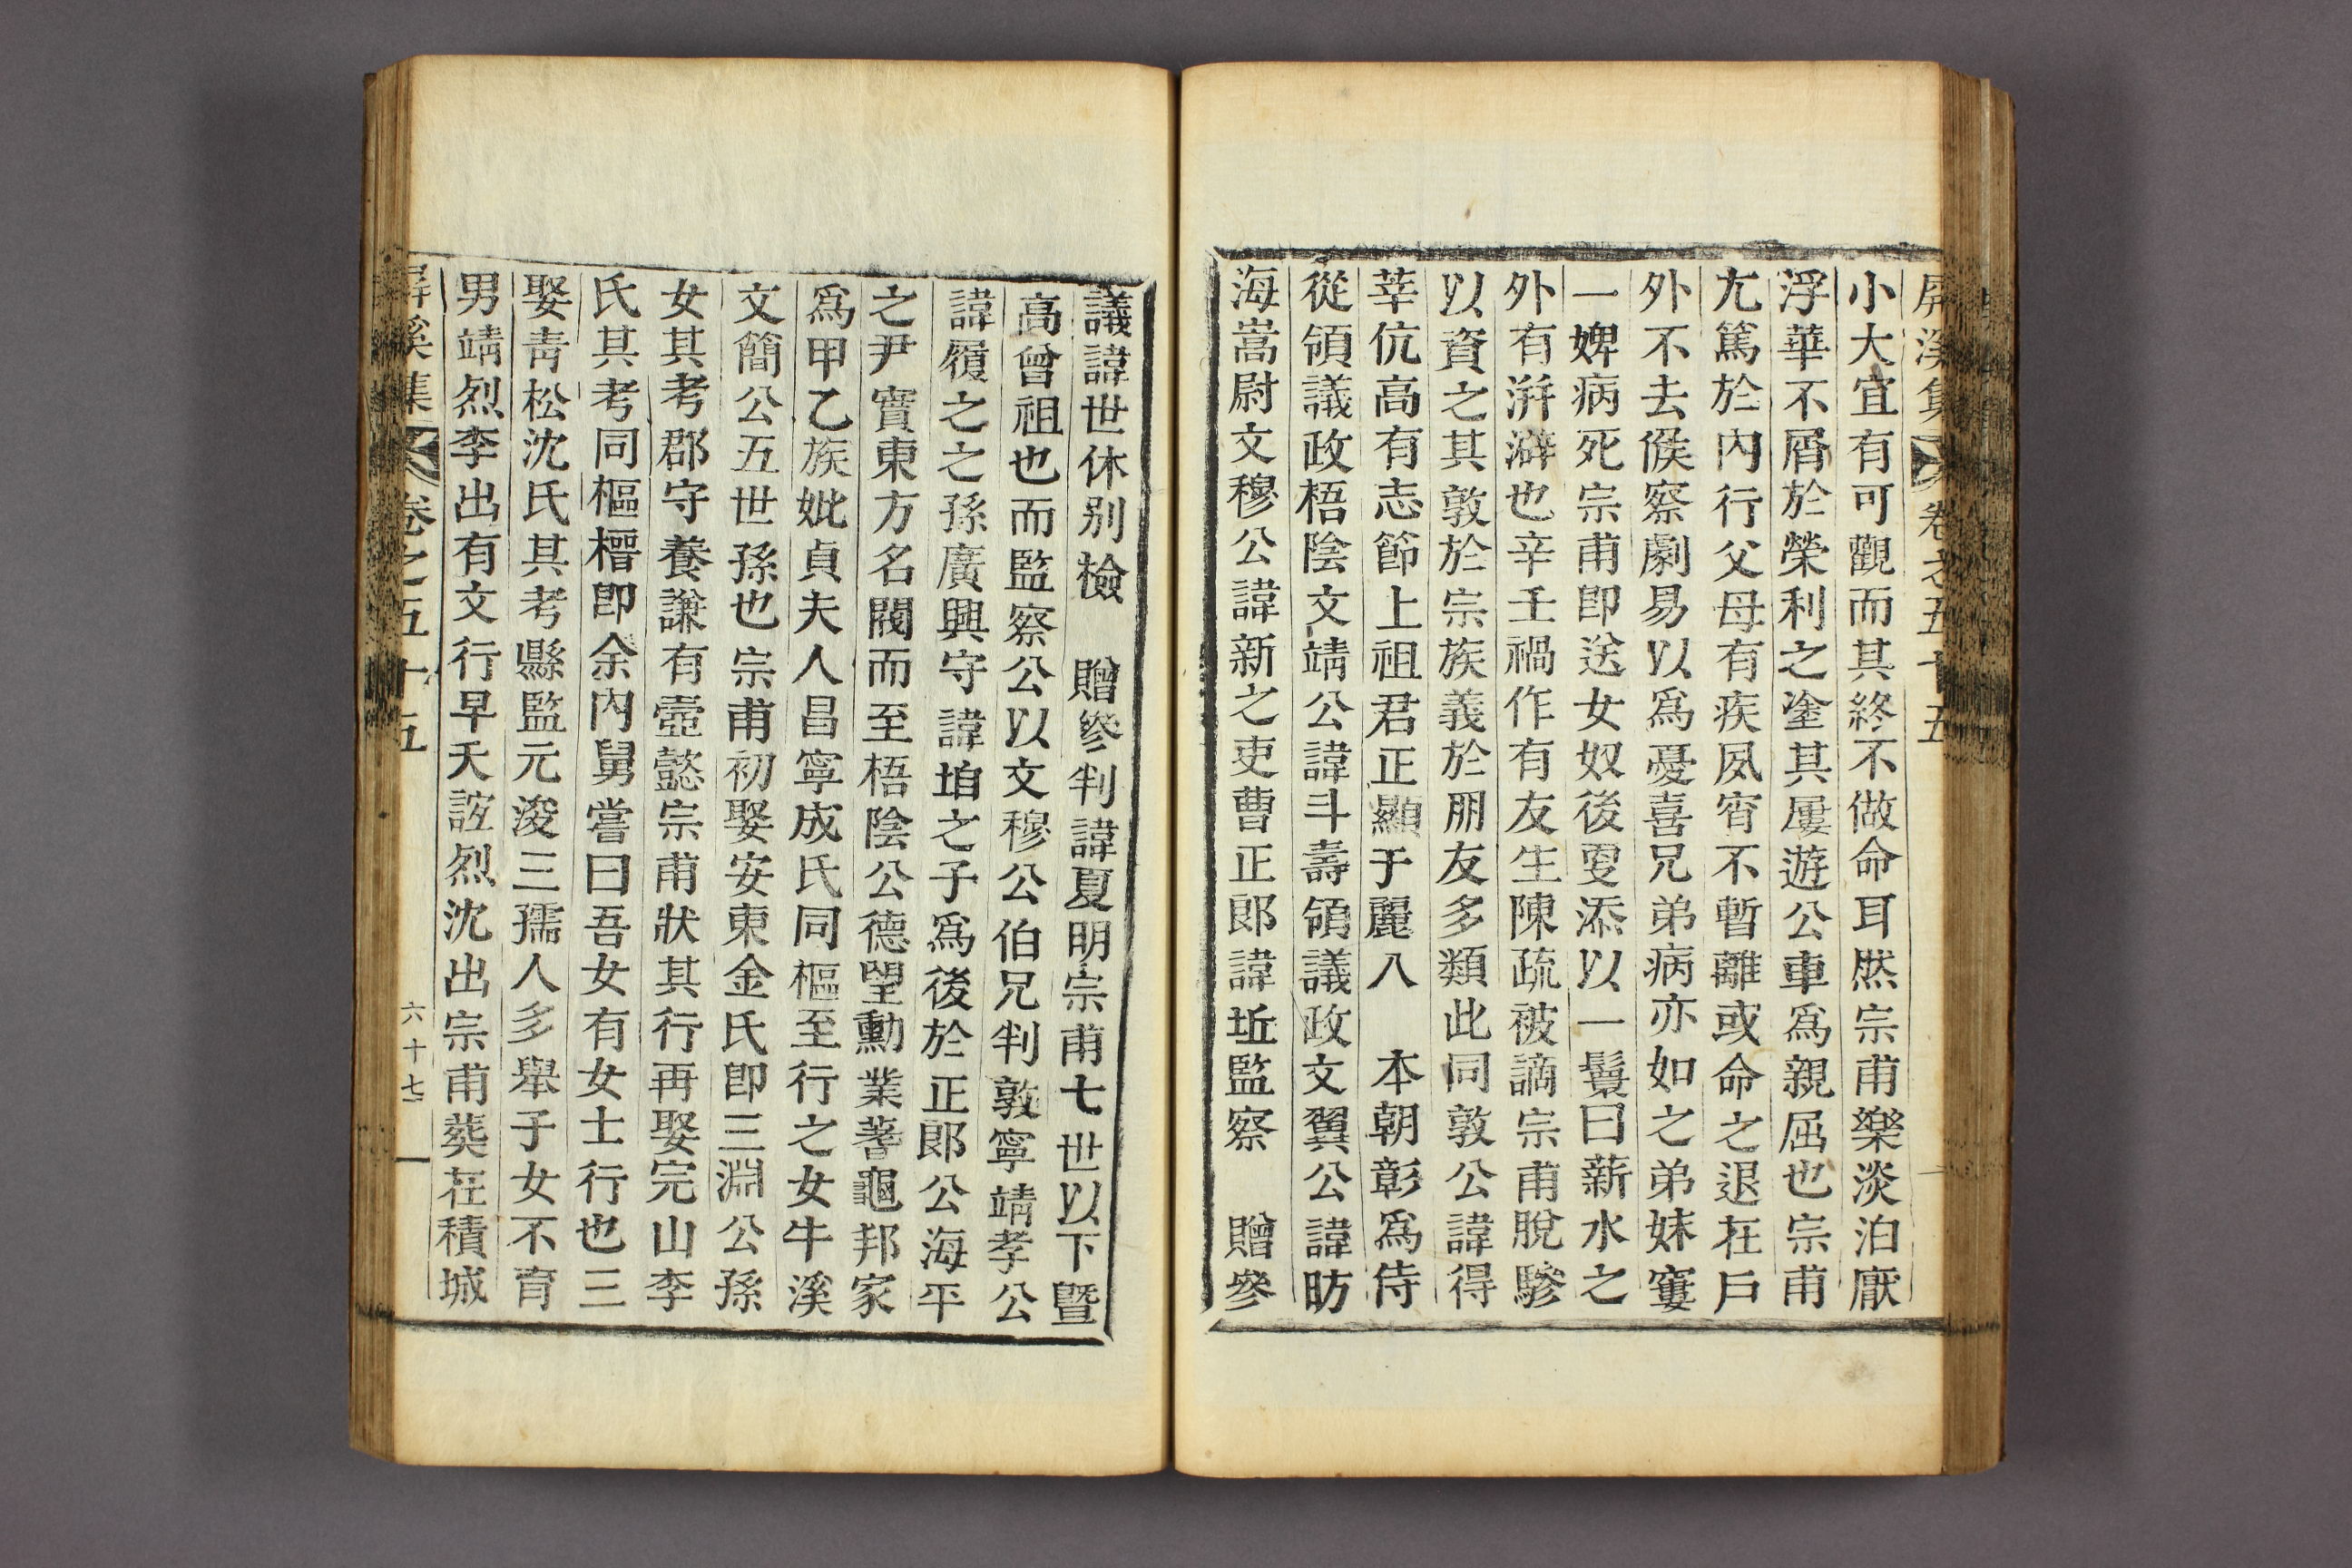 屏溪集 卷之五十五
小大宜有可觀而其終不做命耳然宗甫樂淡泊厭
浮華不屑於榮利之塗其屢遊公車爲親屈也宗甫
尤篤於內行父母有疾夙宵不暫離或命之退在戶
外不去候察劇易以爲憂喜兄弟病亦如之弟妹窶
一婢病死宗甫卽送女奴後更添以一鬟曰薪水之
外有洴澼也辛壬禍作有友生陳疏被謫宗甫脫驂
以資之其敦於宗族義於朋友多類此同敦公諱得
莘伉高有志節上祖君正顯于麗入 本朝彰爲侍
從領議政梧陰文靖公諱斗壽領議政文翼公諱昉
海嵩尉文穆公諱新之吏曹正郞諱坵監察 贈參
議諱世休別檢 贈參判諱夏明宗甫七世以下曁
高曾祖也而監察公以文穆公伯兄判敦寧靖孝公
諱履之之孫廣興守諱垍之子爲後於正郞公海平
之尹實東方名閥而至梧陰公德望勳業蓍龜邦家
爲甲乙族妣貞夫人昌寧成氏同樞至行之女牛溪
文簡公五世孫也宗甫初娶安東金氏卽三淵公孫
女其考郡守養謙有壼懿宗甫狀其行再娶完山李
氏其考同樞橧卽余內舅嘗曰吾女有女士行也三
娶靑松沈氏其考縣監元浚三孺人多舉子女不育
男靖烈李出有文行早夭誼烈沈出宗甫葬在積城
屏溪集 卷之五十五 六十七